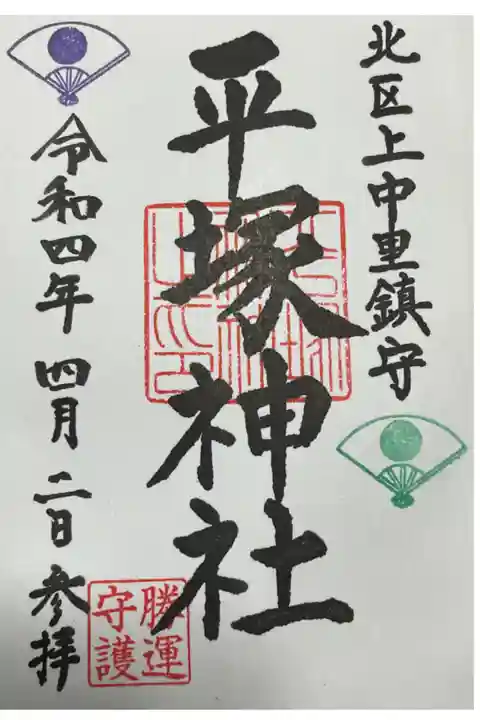 北区上中里鎮守
平塚神社
勝運
守護
令和四年 四月 二日 参拝